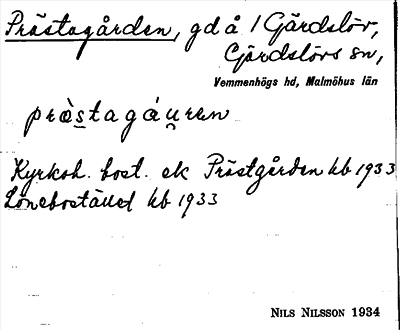 Prästagården, gd å 1 Gärdslöv,
Gärdslövs sn,
Vemmenhögs hd, Malmöhus län
præ̀s̱tagáu̯ren
Kyrkoh. bost. ek Prästgården kb 1933
Lönebostället kb 1933
NILS NILSSON 1934